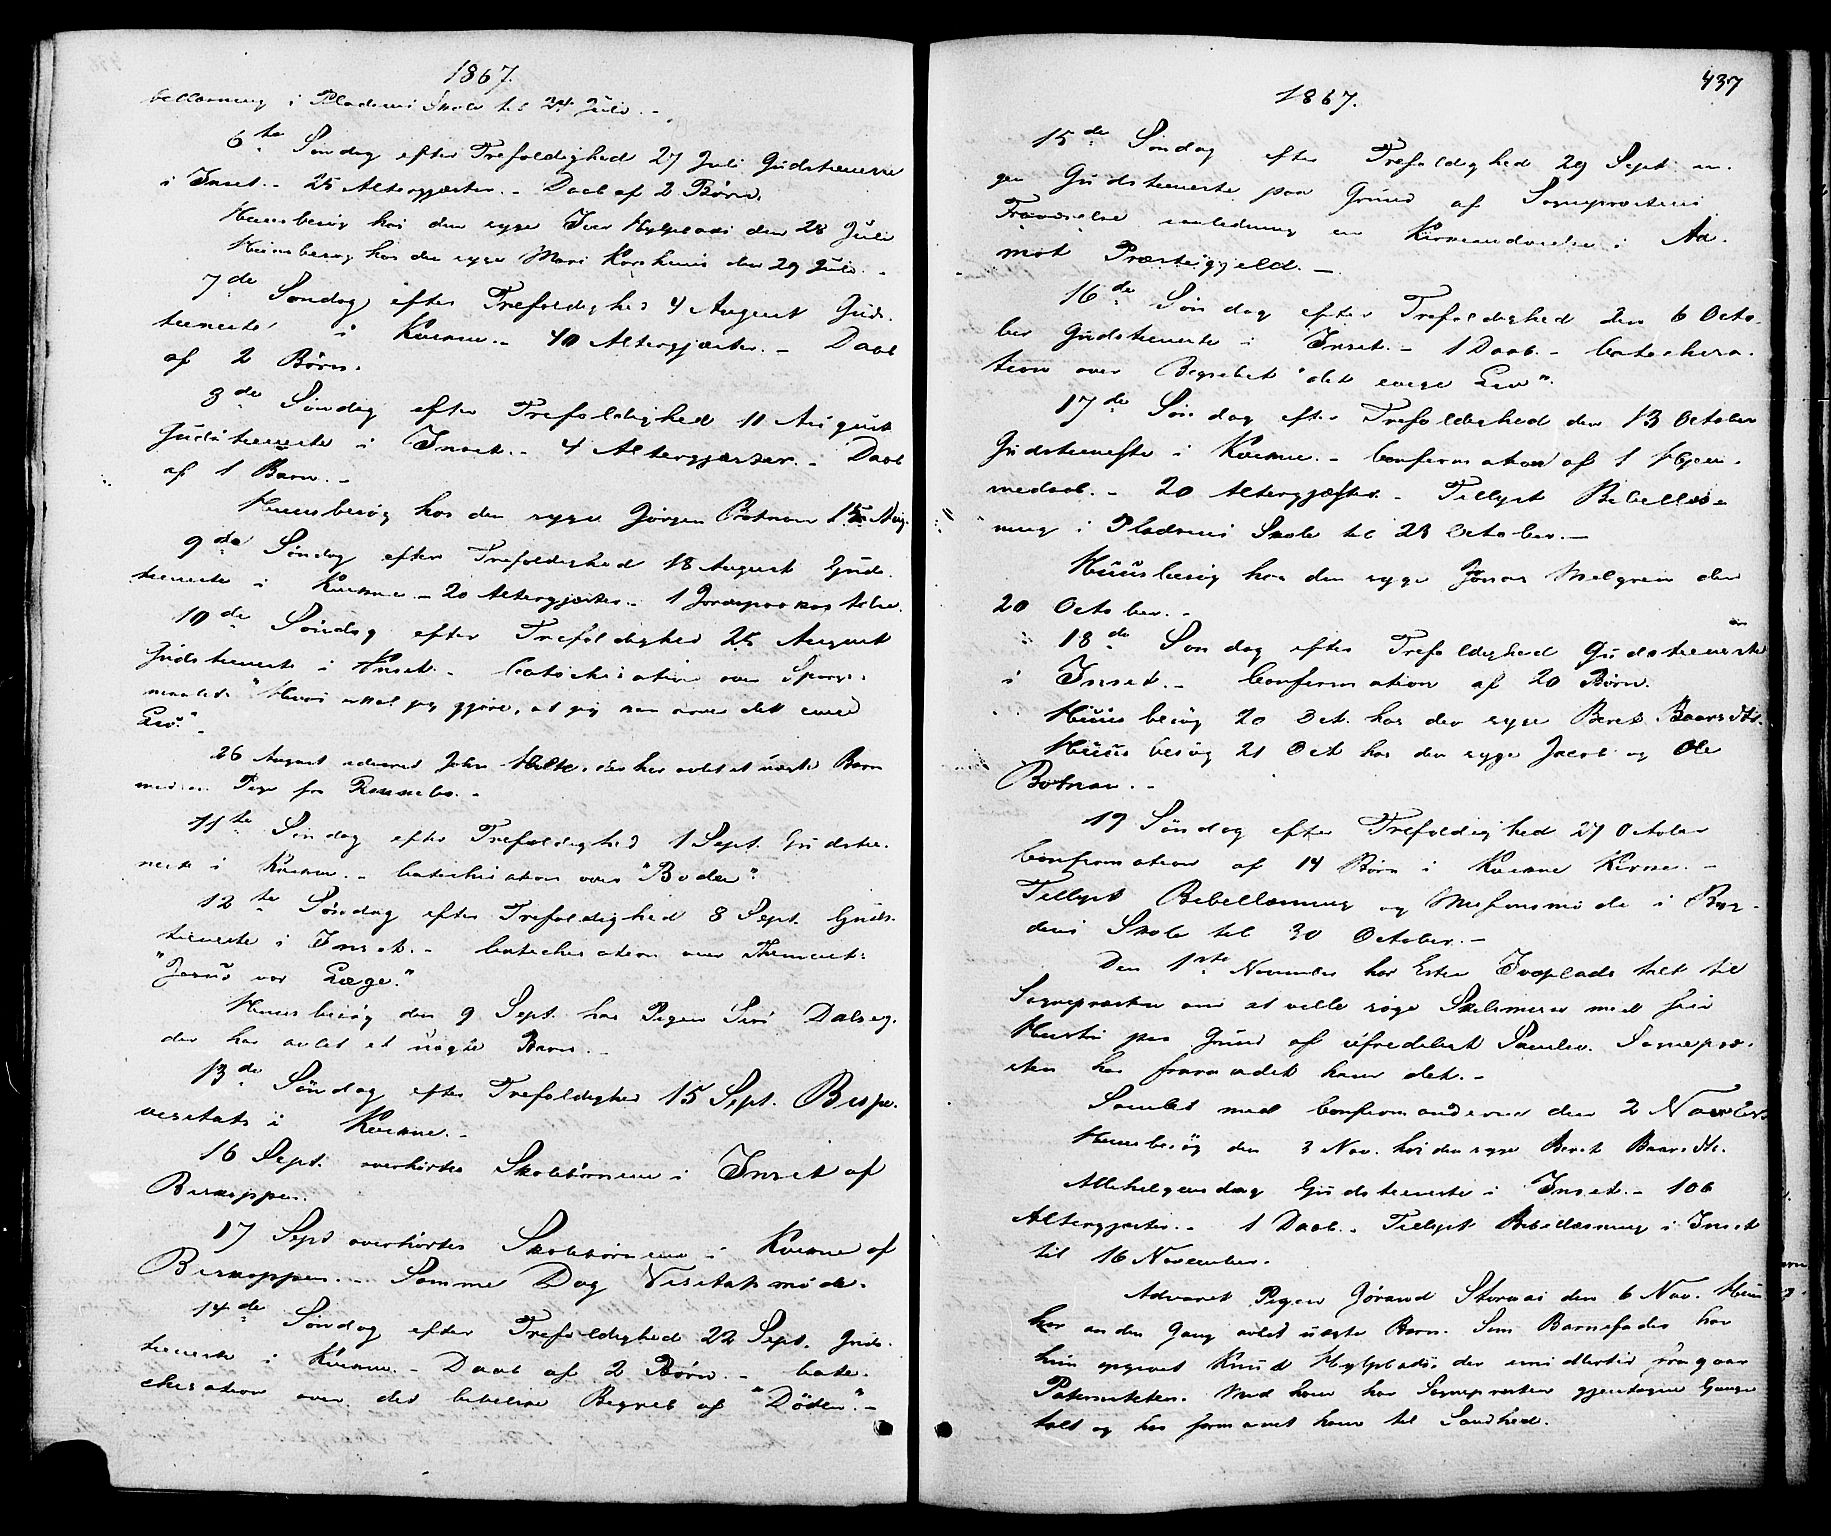 1867.
bellæsning i Pladsens Skole til 24 Juli. -
6te Søndag efter Trefoldighed 27 Juli Gudstieneste
i Inset. - 25 Altergjæster. - Daab af 2 Børn.
Huusbesøg hos den syge Iver den 28 Juli
Huusbesøg hos den syge Mari den 29 Juli. -
7de Søndag efter Trefoldighed 4 August Guds-
tieneste i Kvikne. - 40 Altergjæster. - Daab
af 2 Børn.
8de Søndag efter Trefoldighed 11 August
Gudstieneste i Inset. - 4 Altergjæster. - Daab
af 1 Barn. -
Huusbesøg hos den syge Jørgen 15 Aug.
9de Søndag efter Trefoldighed 18 August Guds-
tieneste i Kvikne - 20 Altergjæster. - 1 Jordpaakastelse.
10de Søndag efter Trefoldighed 25 August
Gudstieneste i Inset. - Catechisation over Spørgs-
maalet: "Hvad skal jeg gjøre, at jeg kan arve det evige
Liv." -
26 August advaret John, der har avlet et uægte Barn
med en Pige fra Rennebo. -
11te Søndag efter Trefoldighed 1 Sept. Gudstie-
neste i Kvikne. - Catechisation over "Boden".
12te Søndag efter Trefoldighed 8 Sept. Guds-
tieneste i Inset. - Catechisation over Themaet:
"Jesus vor Læge."
Huusbesøg den 9 Sept. hos Pigen Siri Dalseg,
der har avlet et uægte Barn. -
13de Søndag efter Trefoldighed 15 Sept. Bispe-
visitats i Kvikne. -
16 Sept. overhørtes Skolebørnene i Inset af
Biskoppen.
17 Sept overhørtes Skolebørnene i Kvikne af
Biskoppen. - Samme Dag Visitatsmøde.
14de Søndag efter Trefoldighed 22 Sept. Guds-
tieneste i Kvikne. - Daab af 2 Børn. - Cate-
chisation over det bibelske Begreb af "Døden". -
437
1867.
15de Søndag efter Trefoldighed 29 Sept. in-
gen Gudstieneste paa Grund af Sognepræstens
Fraværelse i anledning en Kirkeindvielse i Aa-
mot Præstegjeld. -
16de Søndag efter Trefoldighed den 6 Octo-
ber Gudstieneste i Inset. - 1 Daab. - Catechisa-
tion over Begrebet "det evige Liv".
17de Søndag efter Trefoldighed den 13 October
Gudstieneste i Kvikne. - Confirmation af 1 Hjem-
medaab. - 20 Altergjæster. - Tillyst Bibellæs-
ning i Pladsens Skole til 23 October. -
Huusbesøg hos den syge Jonas Melgren den
20 October. -
18de Søndag efter Trefoldighed Gudstieneste
i Inset. - Confirmation af 20 Børn.
Huusbesøg 20 Oct. hos den syge Beret
Huusbesøg 21 Oct hos den syge Jacob og Ole
19 Søndag efter Trefoldighed 27 October
Confirmation af 14 Børn i Kvikne Kirke. -
Tillyst Bibellæsning og Missionsmøde i Byg-
dens Skole til 30 October. -
Den 1ste November har Ester talt til
Sognepræsten om at ville søge Skilsmisse med sin
Hustru paa Grund af ufredeligt Samliv. Sognepræ-
sten har fraraadet ham det. -
Samlet med Confirmanderne den 2 November
Huusbesøg den 3 Nov. hos den syge Beret
Allehelgensdag Gudstieneste i Inset. - 106
Altergjæster. - 1 Daab. - Tillyst Bibellæsning i Inset
til 16 November.
Advaret Pigen Jørand den 6 Nov. Hun
har anden Gang avlet uægte Barn. Som Barnefader har
hun opgivet Knud, der imidlertid fragaar
Paterniteten. Med ham har Sognepræsten gjentagne Gange
talt og har formanet ham til Sandhed.